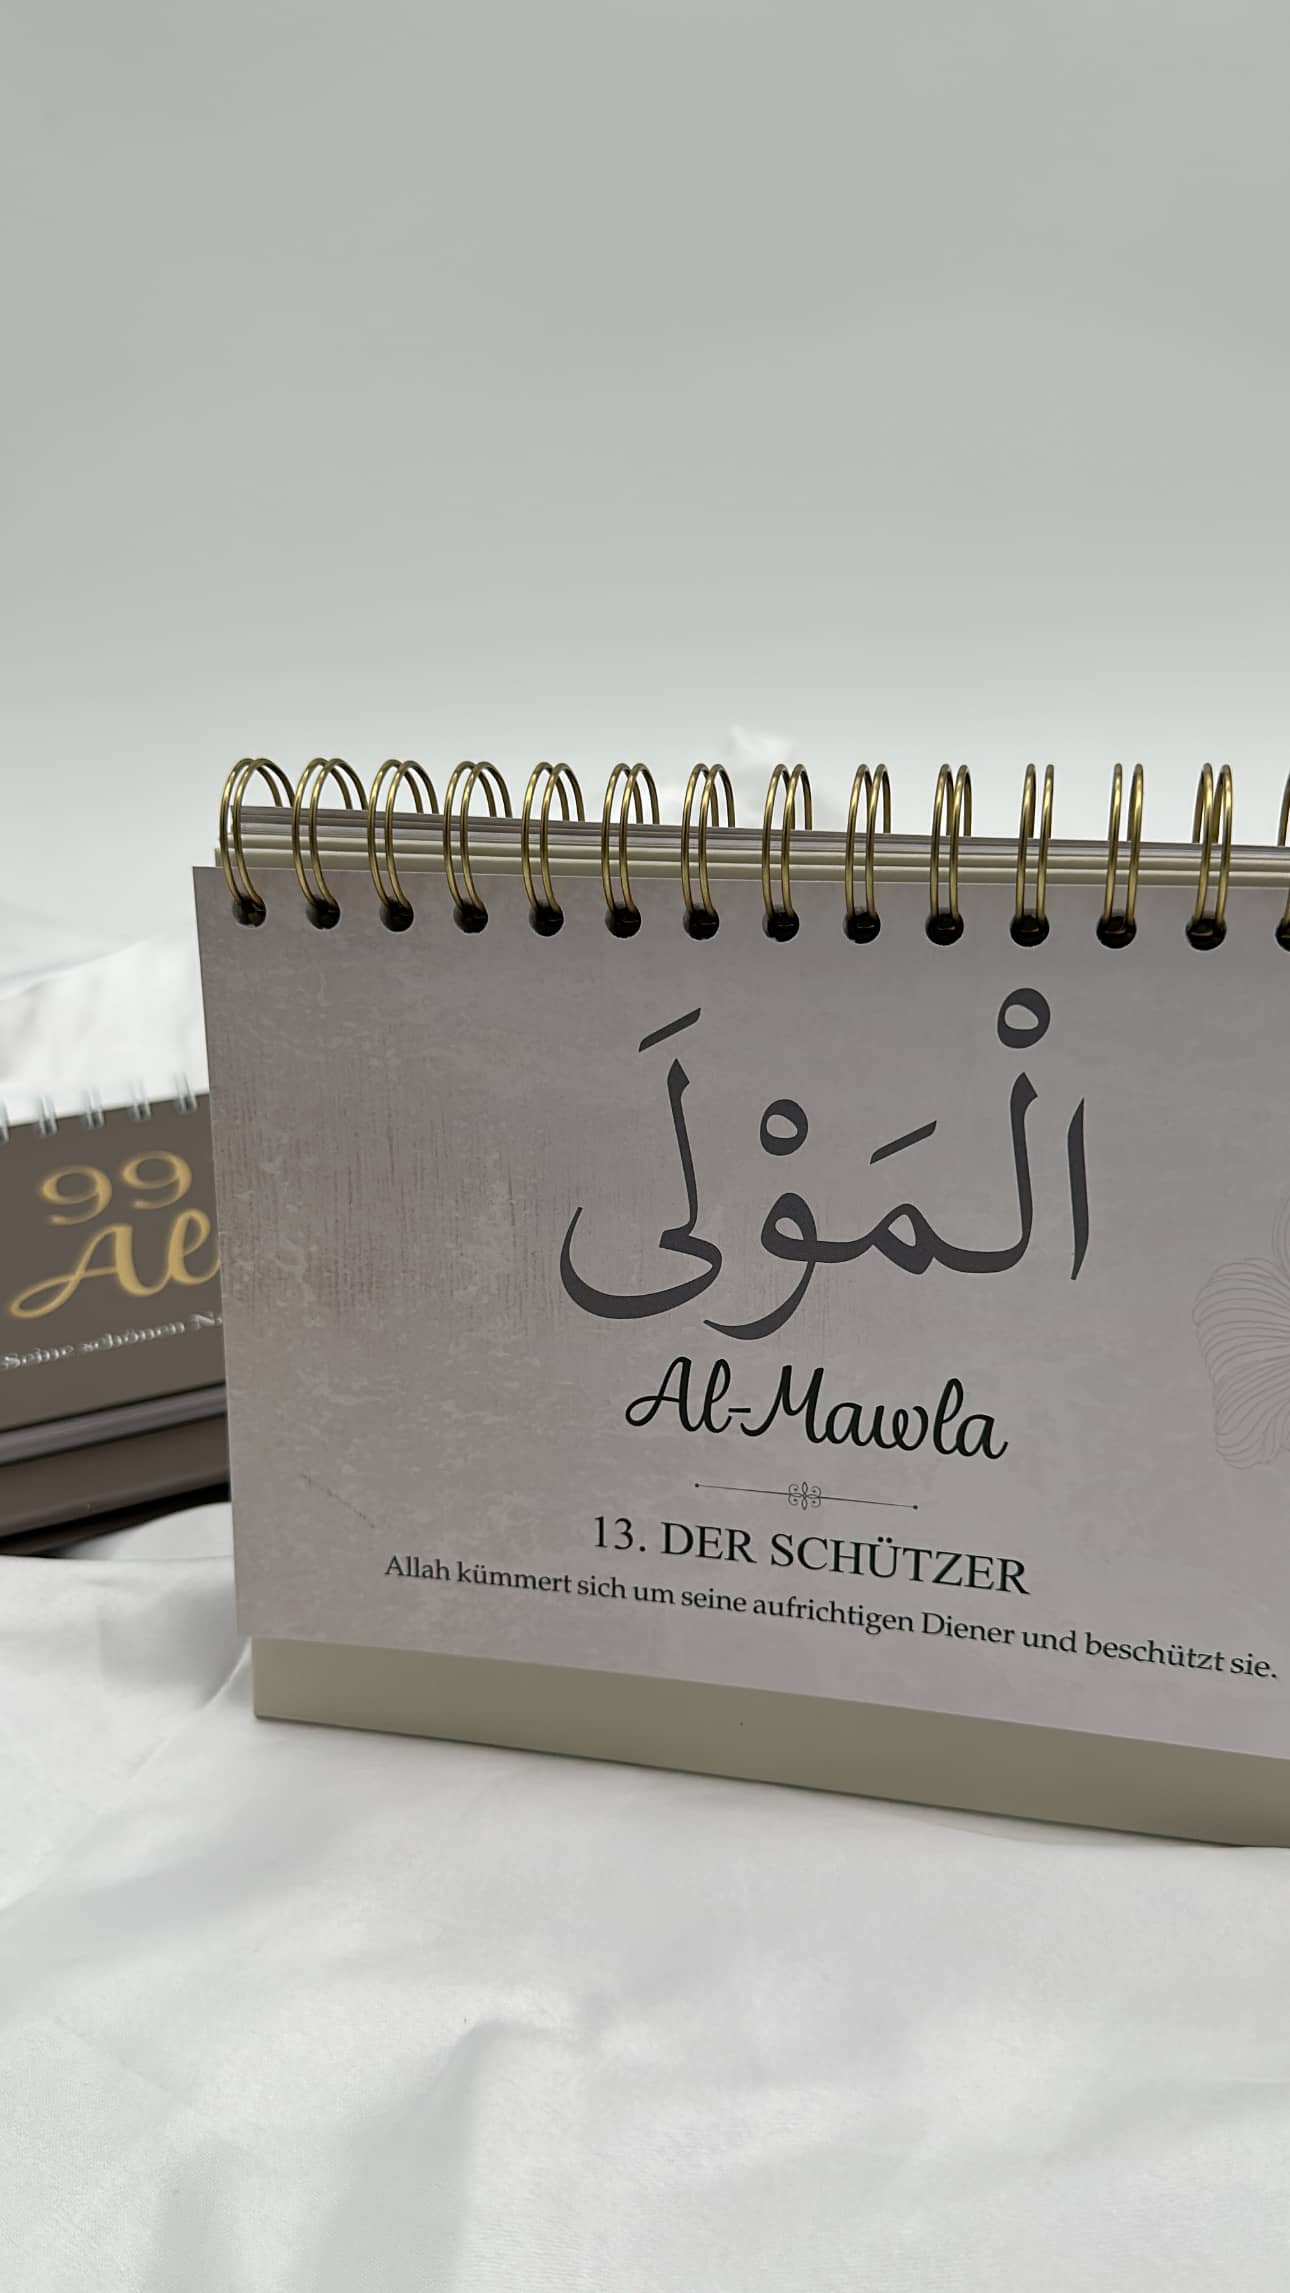 الْمَوْلَى
Al-Mawla
13. DER SCHÜTZER
Allah kümmert sich um seine aufrichtigen Diener und beschützt sie.
99
Seine schönen